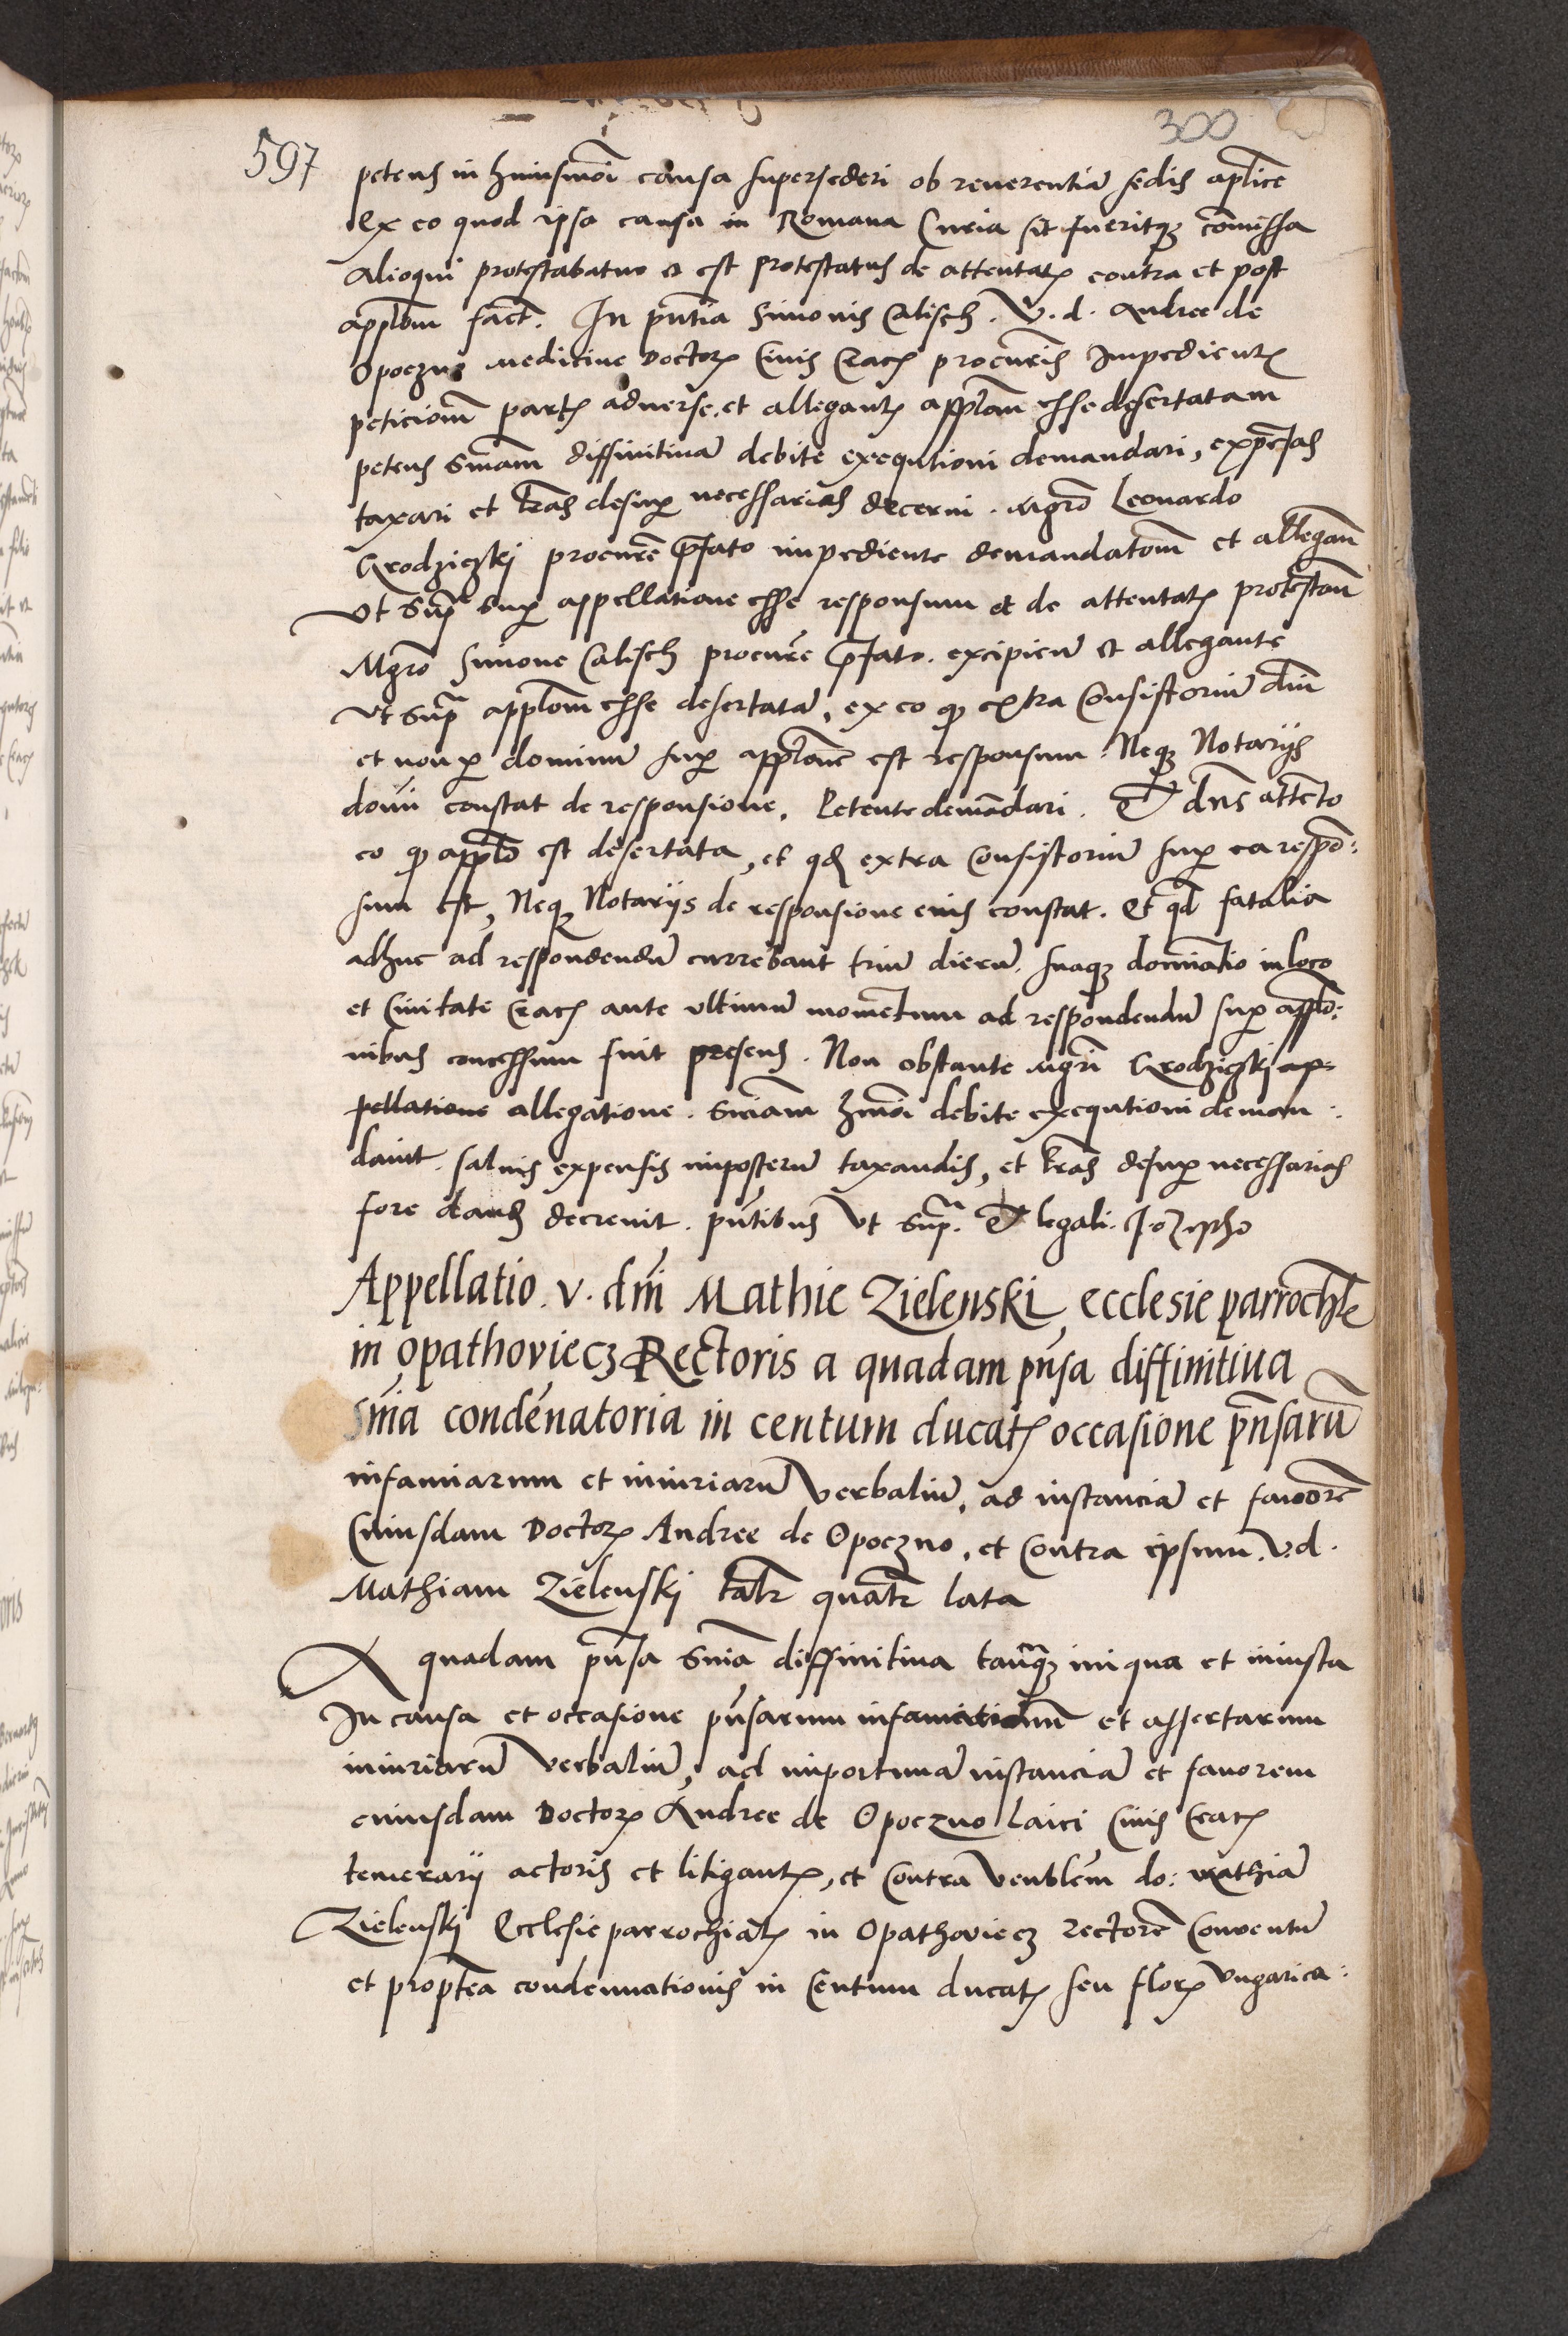 300
597
petens in huiusmoi causa supersederi ob reuerentiā sedis aplice
Ex eo quod ipsa causa in Romana Curia sit fueritqȝ cōmissa
Alioqui protestabatur et est protestatus de attentatꝭ contra et post
applōm fact. In pntia Simonis Calisch. V. d. Andree de
Opoczno medicine Doctorꝭ Ciuis Cracꝭ procuris Impedientꝭ
peticionē partꝭ aduerse. et allegantꝭ applām esse desertatam
petens Snīam diffinitiuā debite exequtioni demandari, expēsas
taxari et lrās desuꝑ necessarias decerni. Mgrō Leonardo
Grodziczkj procurē pfato impediente demandatōm et allegan̄
Vt Supᵃ Suꝑ appellatione esse responsum et de attentatꝭ protestan̄
Mgrō Simone Calisch procurē pfato. excipien̄ et allegante
Vt Supᵃ applōm esse desertatā, ex eo qꝫ extra Consistoriū dnī
et non ꝑ dominū suꝑ applōne est responsum. Neqȝ Notarijs
domi constat de responsione. Petente demādari. Et dns attēto
eo qꝫ applō est desertata, et qd extra Consistoriū suꝑ ea respō:
sum est, Neqȝ Notarijs de responsione eius constat. Et qd fatalia
adhuc ad respondendū currebant triū dierū. suaqȝ domīatio in loco
et Ciuitate Cracꝭ ante vltimū momentum ad respondendū suꝑ applō:
nibus concessum fuit presens. Non obstante Mgrī Grodziczkj ap=
pellatione allegatione. Snīam hmōi debite exequtioni deman:
dauit. saluis expensis imposterū taxandis, et lrās desuꝑ necessarias
fore dandas decreuit. pntibus Vt Supᵃ. Et legali. Jozepho
Appellatio. v. dnī Mathie Zielenski, ecclesie parrochle
in opathoviecz Rectoris a quadam pnsa diffinitiua
Snīa condēnatoria in centum ducatꝭ occasione prnsarū
infamiarum et iniuriarū Verbaliū, ad instanciā et fauorē
Cuiusdam Doctorꝭ Andree de Opoczno, et Contra ipsum. V. d.
Mathiam Zielenskj talr qualr lata
A quadam pnsa Snīa diffinitiua tanqȝ iniqua et iniusta
In causa et occasione pnsarum et assertarum
iniuriarū Verbaliū, ad importunā instanciā et fauorem
cuiusdam Doctorꝭ Andree de Opoczno laici Ciuis Cracꝭ
temerarij actoris et litigantꝭ, et Contra Venblēm do: Mathiā
Zielenskj Ecclesie parrochialꝭ in Opathoviecz rectorē Conuentū
et proptea condemnationis in Centum ducatꝭ seu florꝭ Vngarica: